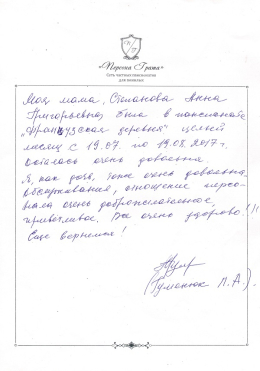 «Перваѧ Гратѧ»
Сеть частных пансионатов
для пожилых
Моя мама, Степанова Анна
Григорьевна была в пансионате
"Французская деревня" целый
месяц с 19.07. по 19.08.2017г.
Осталась очень довольна
Я, как дочь, тоже очень довольна.
Обслуживания, отношение персо-
нала очень доброжелательное,
приветливое. Все очень здорово!!!
Еще вернемся!